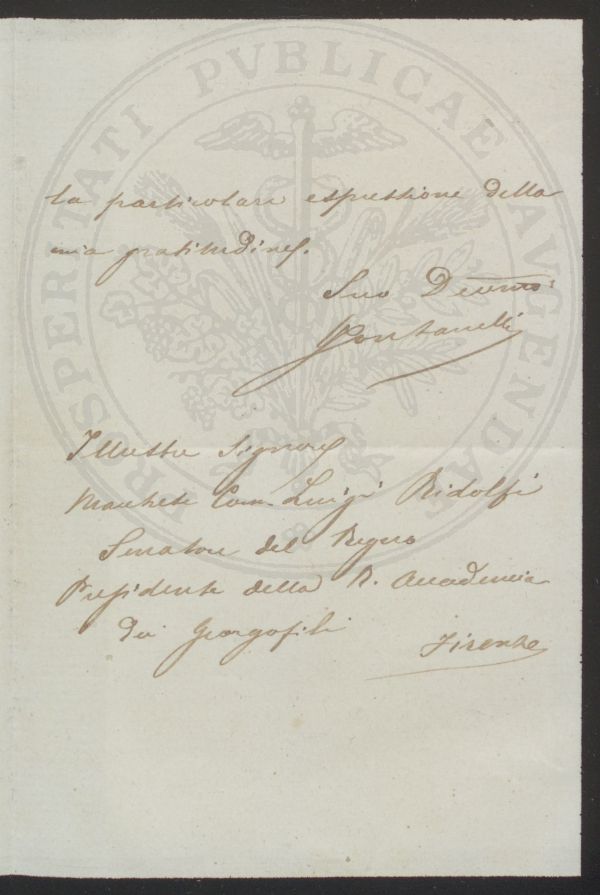 PROSPERITATI PVBLICAE AVGENDAE
la particolare espressione della
mia gratitudine.
Suo Devmo:
Fontanelli
Illustre Signore
Marchese Com. Luigi Ridolfi
Senatore del Regno
Presidente della R. Accademia
dei Georgofili
Firenze